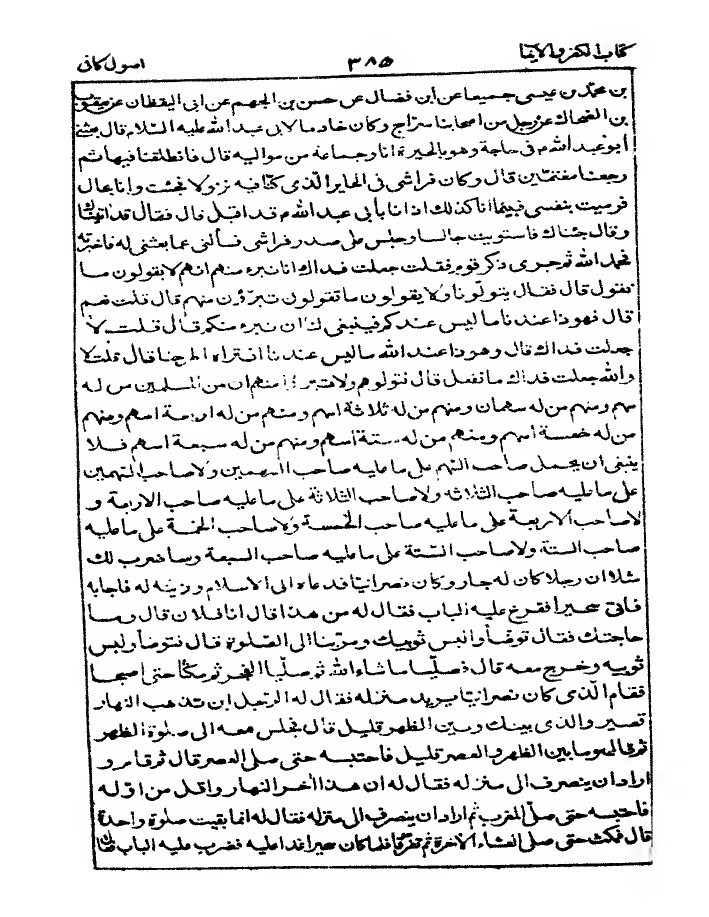 كتاب الكفر والايمان
٣٨٥
اصول كافى
بن محمد بن عيسى جميعا عن ابن فضال عن حسن بن الجهم عن ابى اليقظان عن يعقوب
بن الضحاك عن رجل من اصحابنا سراج وكان خادما لابى عبد الله عليه السلام قال بعثنى
ابو عبد الله م فى حاجة وهو بالحيرة انا وجماعة من مواليه قال فانطلقنا فيها ثم
رجعنا مغتمين قال وكان فراشى فى الحاير الذى كنا فيه نزولا فجئت وانا بحال
فرميت بنفسى فبينما انا كذلك اذ انا بابى عبد الله م قد اقبل قال فقال قد اتيناك
وقال جئناك فاستويت جالسا وجلس على صدر فراشى فسألنى عما بعثنى له فاخبرته
فحمد الله ثم جرى ذكر قوم فقلت جعلت فداك انا نبرء منهم انهم لا يقولون ما
نقول قال فقال يتولونا ولا يقولون ما تقولون تبرؤن منهم قال قلت نعم
قال فهوذا عندنا ما ليس عندكم فينبغى لنا ان نبرء منكم قال قلت لا
جعلت فداك قال وهوذا عند الله ما ليس عندنا افتراه اطرحنا قال قلت لا
والله جعلت فداك ما نفعل قال فتولوهم ولا تبرؤا منهم ان من المسلمين من له
سهم ومنهم من له سهمان ومنهم من له ثلاثة اسهم ومنهم من له اربعة اسهم ومنهم
من له خمسة اسهم ومنهم من له ستة اسهم ومنهم من له سبعة اسهم فلا
ينبغى ان يحمل صاحب السهم على ما عليه صاحب السهمين ولا صاحب السهمين
على ما عليه صاحب الثلاثة ولا صاحب الثلاثة على ما عليه صاحب الاربعة و
لا صاحب الاربعة على ما عليه صاحب الخمسة ولا صاحب الخمسة على ما عليه
صاحب الستة ولا صاحب الستة على ما عليه صاحب السبعة وساضرب لك
مثلا ان رجلا كان له جار وكان نصرانيا فدعاه الى الاسلام وزينه له فاجابه
فاتى سحيرا فقرع عليه الباب فقال له من هذا قال انا فلان قال وما
حاجتك فقال توضأ والبس ثوبيك ومر بنا الى الصلوة قال فتوضأ ولبس
ثوبيه وخرج معه قال فصليا ما شاء الله ثم صليا الفجر ثم مكثا حتى اصبحا
فقام الذى كان نصرانيا يريد منزله فقال له الرجل اين تذهب النهار
قصير والذى بينك وبين الظهر قليل قال فجلس معه الى صلوة الظهر
ثم قال وما بين الظهر والعصر قليل فاحتبسه حتى صلى العصر قال ثم قام و
اراد ان ينصرف الى منزله فقال له ان هذا آخر النهار واقل من اوله
فاحتبسه حتى صلى المغرب ثم اراد ان ينصرف الى منزله فقال له انما بقيت صلوة واحدة
قال فمكث حتى صلى العشاء الآخرة ثم تفرقا فلما كان سحيرا غدا عليه فضرب عليه الباب فقال